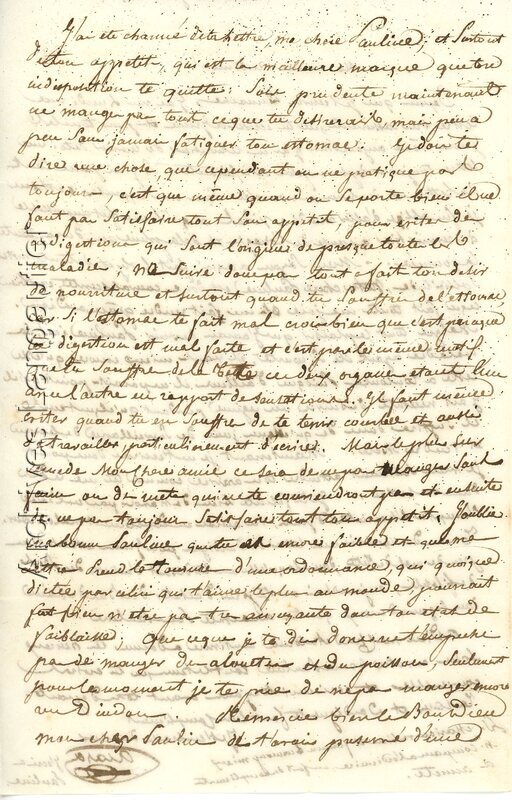 J'ai ete charmé de ta lettre, ma chere Pauline, et surtout
de ton appetit, qui est la meilleure marque que ton
indisposition te quitte: Sois prudente maintenant
ne mange pas tout ce que tu desirerais, mais peu a
peu sans jamais fatiguer ton estomac. Je dois te
dire une chose, que cependant on ne pratique pas
toujours, c'est que même quand on se porte bien il ne
faut pas satisfaire tout son appetit pour eviter des
indigestions qui sont l'origine de presque toutes les
maladies; ne suis donc pas tout a fait ton desir
de nourriture et surtout quand tu souffre de l'estomac
car si l'estomac te fait mal crois bien que c'est parceque
la digestion est mal faite et c'est par le même motif
que tu souffre de la tête ces deux organes etant l'un
avec l'autre en rapport de sensations. Il faut même
eviter quand tu en souffre de te tenir courbée et aussi
de travailler particulierement d'ecrire. Mais le plus sur
de Ma chere amie ce sera de ne pas manger sans
faim ou des mets qui ne te conviendroit pas et ensuite
de ne pas toujours satisfaire tout ton appetit. J'oublie
ma bonne Pauline que tu est encore faible et que ma
lettre prend le tournure d'une ordonnance, qui quoique
dictée par celui qui t'aime le plus au monde, pourrait
fort bien n'etre pas tres amusante dans ton etat de
faiblesse. Que ce que je te dis donc ne t'empeche
pas de manger des alouettes et du poisson, seulement
pour le moment je te prie de ne pas manger encore
un Dindon. Remercie bien le Bon Dieu
mon cher Pauline de t'avoir preservé d'une
Archives Larpanlier